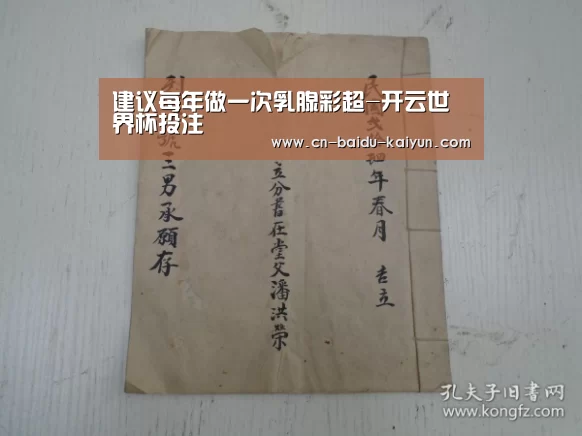 建议每年做一次乳腺彩超-开云世
界杯投注
www.cn-baidu-kaiyun.com
民國
年春月 吉立
立分書在堂父潘洪榮
三男承願存
孔夫子旧书网
www.kongfz.com